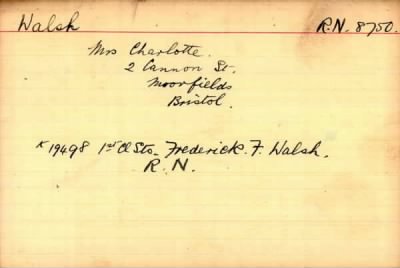 Walsh R.N. 8750.
Mrs Charlotte.
2 Cannon St.
Moorfields
Bristol.
K 19498 1st Cl Sto. Frederick. F. Walsh.
R.N.